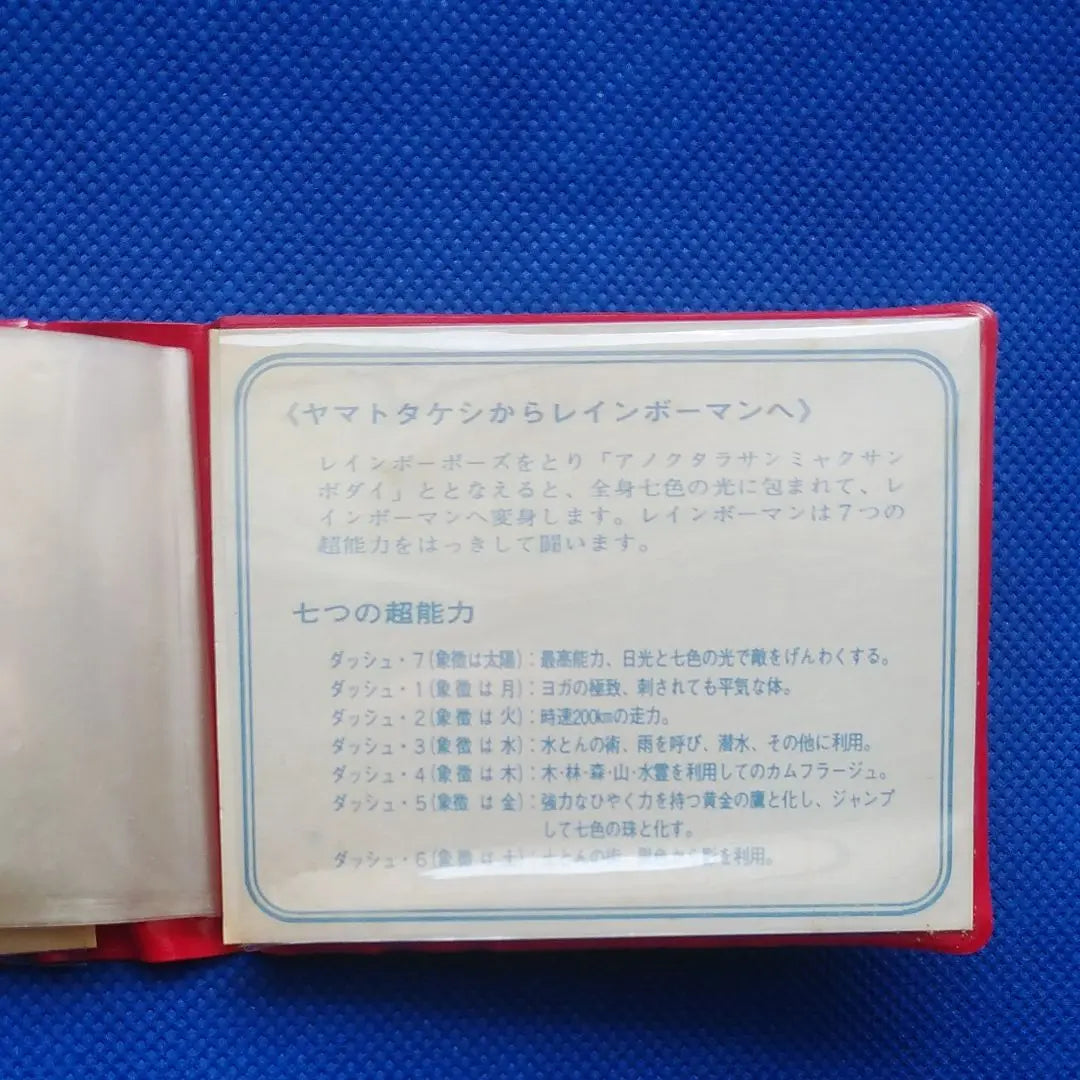 〈ヤマトタケシからレインボーマンへ〉
レインボーポーズをとり「アノクタラサンミャクサン
ボダイ」ととなえると、全身七色の光に包まれて、レ
インボーマンへ変身します。レインボーマンは7つの
超能力をはっきして闘います。
七つの超能力
ダッシュ・7(象徴は太陽):最高能力、日光と七色の光で敵をげんわくする。
ダッシュ・1(象徴は月):ヨガの極致、刺されても平気な体。
ダッシュ・2(象徴は火):時速200kmの走力。
ダッシュ・3(象徴は水):水とんの術、雨を呼び、潜水、その他に利用。
ダッシュ・4(象徴は木):木・林・森・山・水霊を利用してのカムフラージュ。
ダッシュ・5(象徴は金):強力なひやく力を持つ黄金の鷹と化し、ジャンプ
して七色の珠と化す。
ダッシュ・6(象徴は土):土とんの術、を利用。